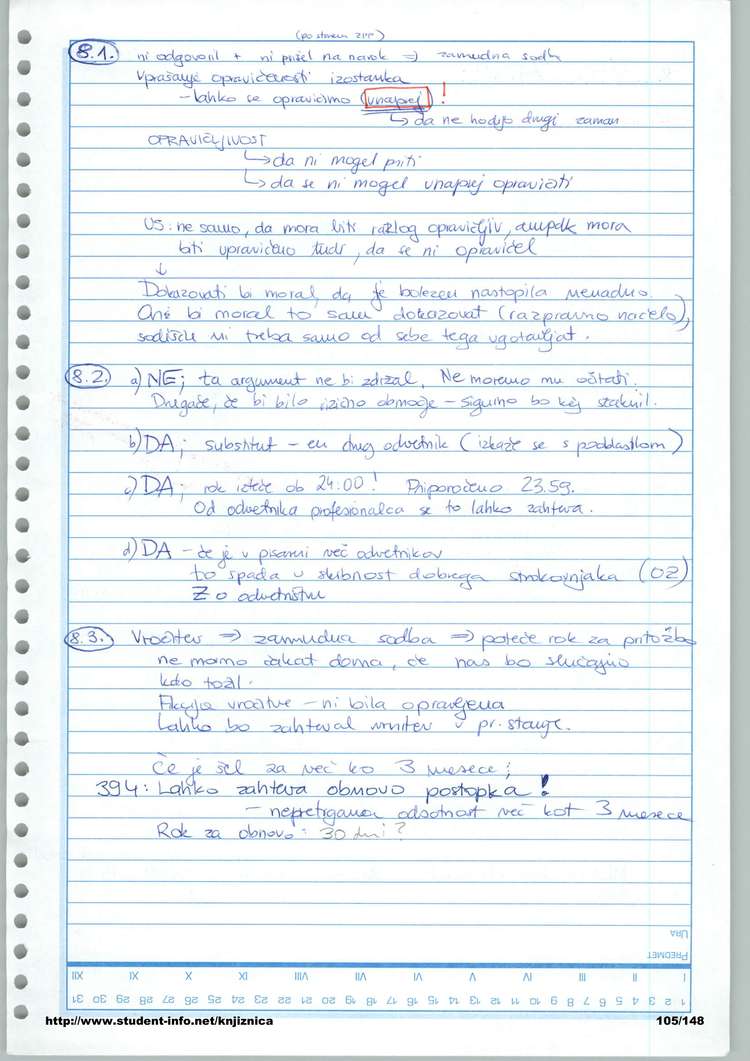 (po starem ZPP)
8.1. ni odgovoril + ni prišel na narok => zamudna sodb
Vprašanje opravičenosti izostanka
- lahko se opravičimo (vnaprej)!
↳ da ne hodijo drugi zaman
OPRAVIČLJIVOST
↳ da ni mogel priti
↳ da se ni mogel vnaprej opravičiti
US: ne samo, da mora biti razlog opravičljiv, ampak mora
biti upravičeno tudi, da se ni opravičel
↓
Dokazovati bi moral, da je bolezen nastopila nenadno.
Oni bi moral to sam dokazovat (razpravno načelo),
sodišču ni treba samo od sebe tega ugotavljat.
8.2. a) NE; ta argument ne bi zdržal. Ne moremo mu očitati.
Drugače, če bi bilo izično območje - sigurno bo kej staknil.
b) DA; substitut - en drug odvetnik (izkaže se s pooblastilom)
c) DA; rok izteče ob 24:00! Priporočeno 23.59.
Od odvetnika profesionalca se to lahko zahteva.
d) DA - če je v pisarni več odvetnikov
to spada v skrbnost dobrega strokovnjaka (OZ)
Z o odvetništvu
8.3. Vročitev => zamudna sodba => poteče rok za pritožbo
ne mormo čakat doma, če nas bo slučajno
kdo tožil.
Fikcija vročitve - ni bila opravljena
Lahko bo zahteval vrnitev v pr. stanje.
Če je šel za več ko 3 mesece;
394: Lahko zahteva obnovo postopka!
- nepretrgana odsotnost več kot 3 mesece
Rok za obnovo: 30 dni?
URA
PREDMET
XII XI X IX VIII VII VI V IV III II I
1 2 3 4 5 6 7 8 9 10 11 12 13 14 15 16 17 18 19 20 21 22 23 24 25 26 27 28 29 30 31
http://www.student-info.net/knjiznica 105/148